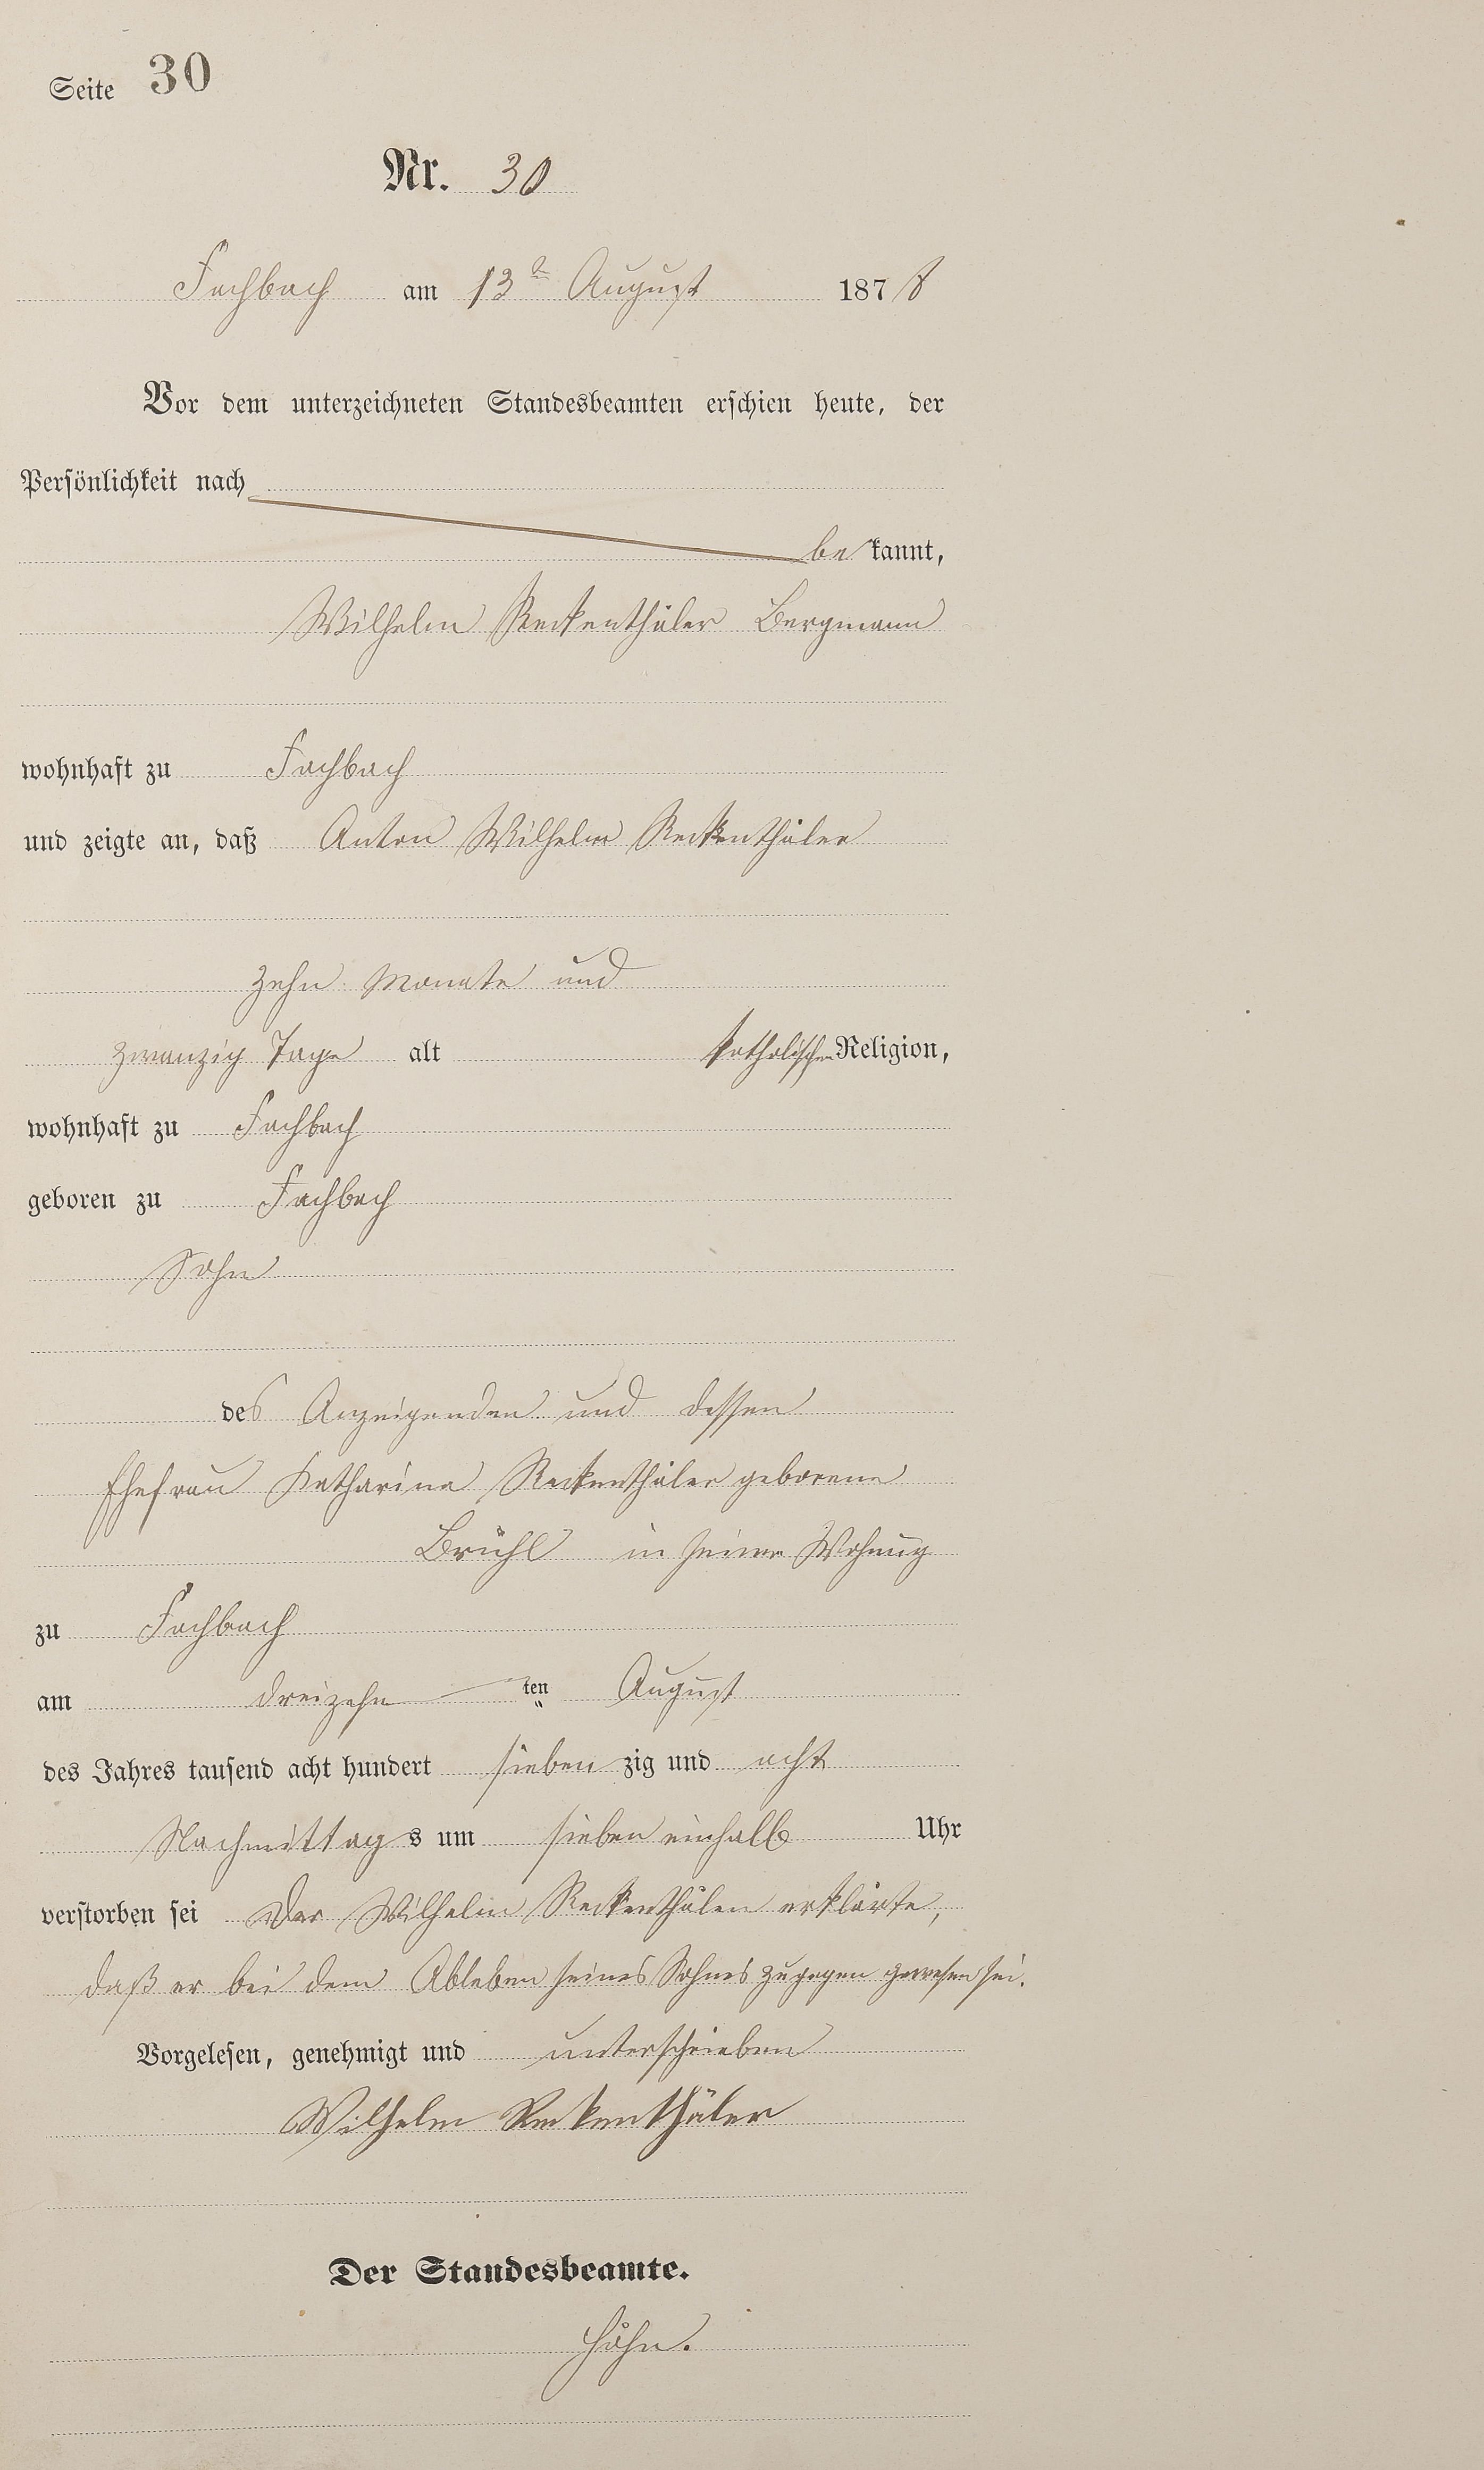 Seite 30
Nr. 30
Fachbach am 13ten August 1878
Vor dem unterzeichneten Standesbeamten erschien heute, der
Persönlichkeit nach
bekannt,
Wilhelm Reckenthäler Bergmann
wohnhaft zu Fachbach
und zeigte an, daß Anton Wilhelm Reckenthäler
zehn Monate und
zwanzig Tage alt katholischer Religion,
wohnhaft zu Fachbach
geboren zu Fachbach
Sohn
des Anzeigenden und dessen
Ehefrau Katharina Reckenthäler geborene
Brühl in seiner Wohnung
zu Fachbach
am dreizehnten August
des Jahres tausend acht hundert siebenzig und acht
Nachmittags um sieben einhalb Uhr
verstorben sei Der Wilhelm Reckenthäler erklärte,
daß er bei dem Ableben seines Sohnes zugegen gewesen sei.
Vorgelesen, genehmigt und unterschrieben
Wilhelm Reckenthäler
Der Standesbeamte.
Höhn.